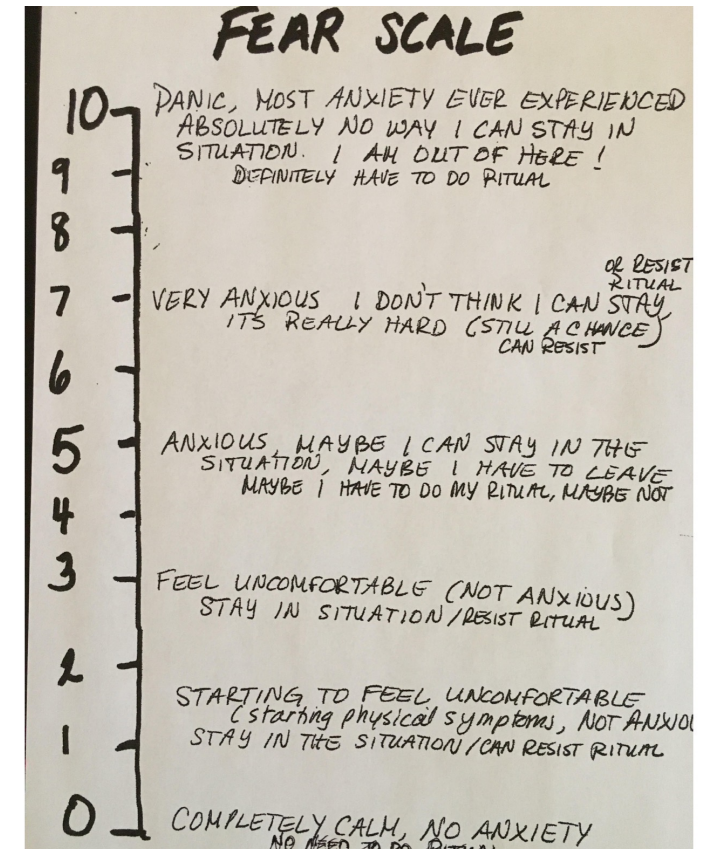 FEAR SCALE
10 PANIC, MOST ANXIETY EVER EXPERIENCED
ABSOLUTELY NO WAY I CAN STAY IN
SITUATION. I AM OUT OF HERE!
9
DEFINITELY HAVE TO DO RITUAL
8
OR RESIST
RITUAL
7 VERY ANXIOUS I DON'T THINK I CAN STAY,
ITS REALLY HARD (STILL A CHANCE)
CAN RESIST
6
5 ANXIOUS, MAYBE I CAN STAY IN THE
SITUATION, MAYBE I HAVE TO LEAVE
MAYBE I HAVE TO DO MY RITUAL, MAYBE NOT
4
3 FEEL UNCOMFORTABLE (NOT ANXIOUS)
STAY IN SITUATION/RESIST RITUAL
2
STARTING TO FEEL UNCOMFORTABLE
(starting physical symptoms, NOT ANXIOU
1 STAY IN THE SITUATION/CAN RESIST RITUAL
0 COMPLETELY CALM, NO ANXIETY
NO NEED TO DO RITUAL